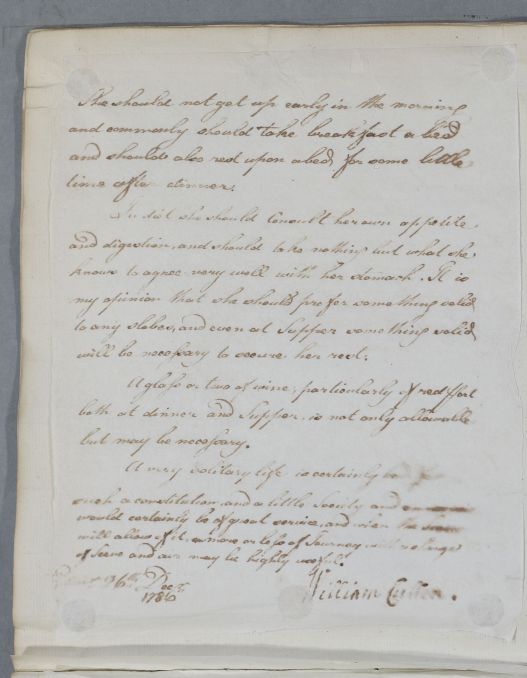 She should not get up early in the morning
and commonly should take breakfast a bed
and should also rest upon a bed for some little
time after dinner.
In diet she should Consult her own appetite
and digestion, and should take nothing but what she
knows to agree very well with her stomach. It is
my opinion that she should prefer something solid
to any slabes, and even at Supper something solid
will be necessary to secure her rest.
A glass or two of wine, particularly of red Port
both at dinner and Supper, is not only allowable
but may be necessary.
A very solitary life is certainly
such a constitution, and a little Society and
would certainly be of great service, and when the
will allow of it, a more or less of Journey with
of Scene and air may be highly useful.
26th Decr.
1786
William Cullen.